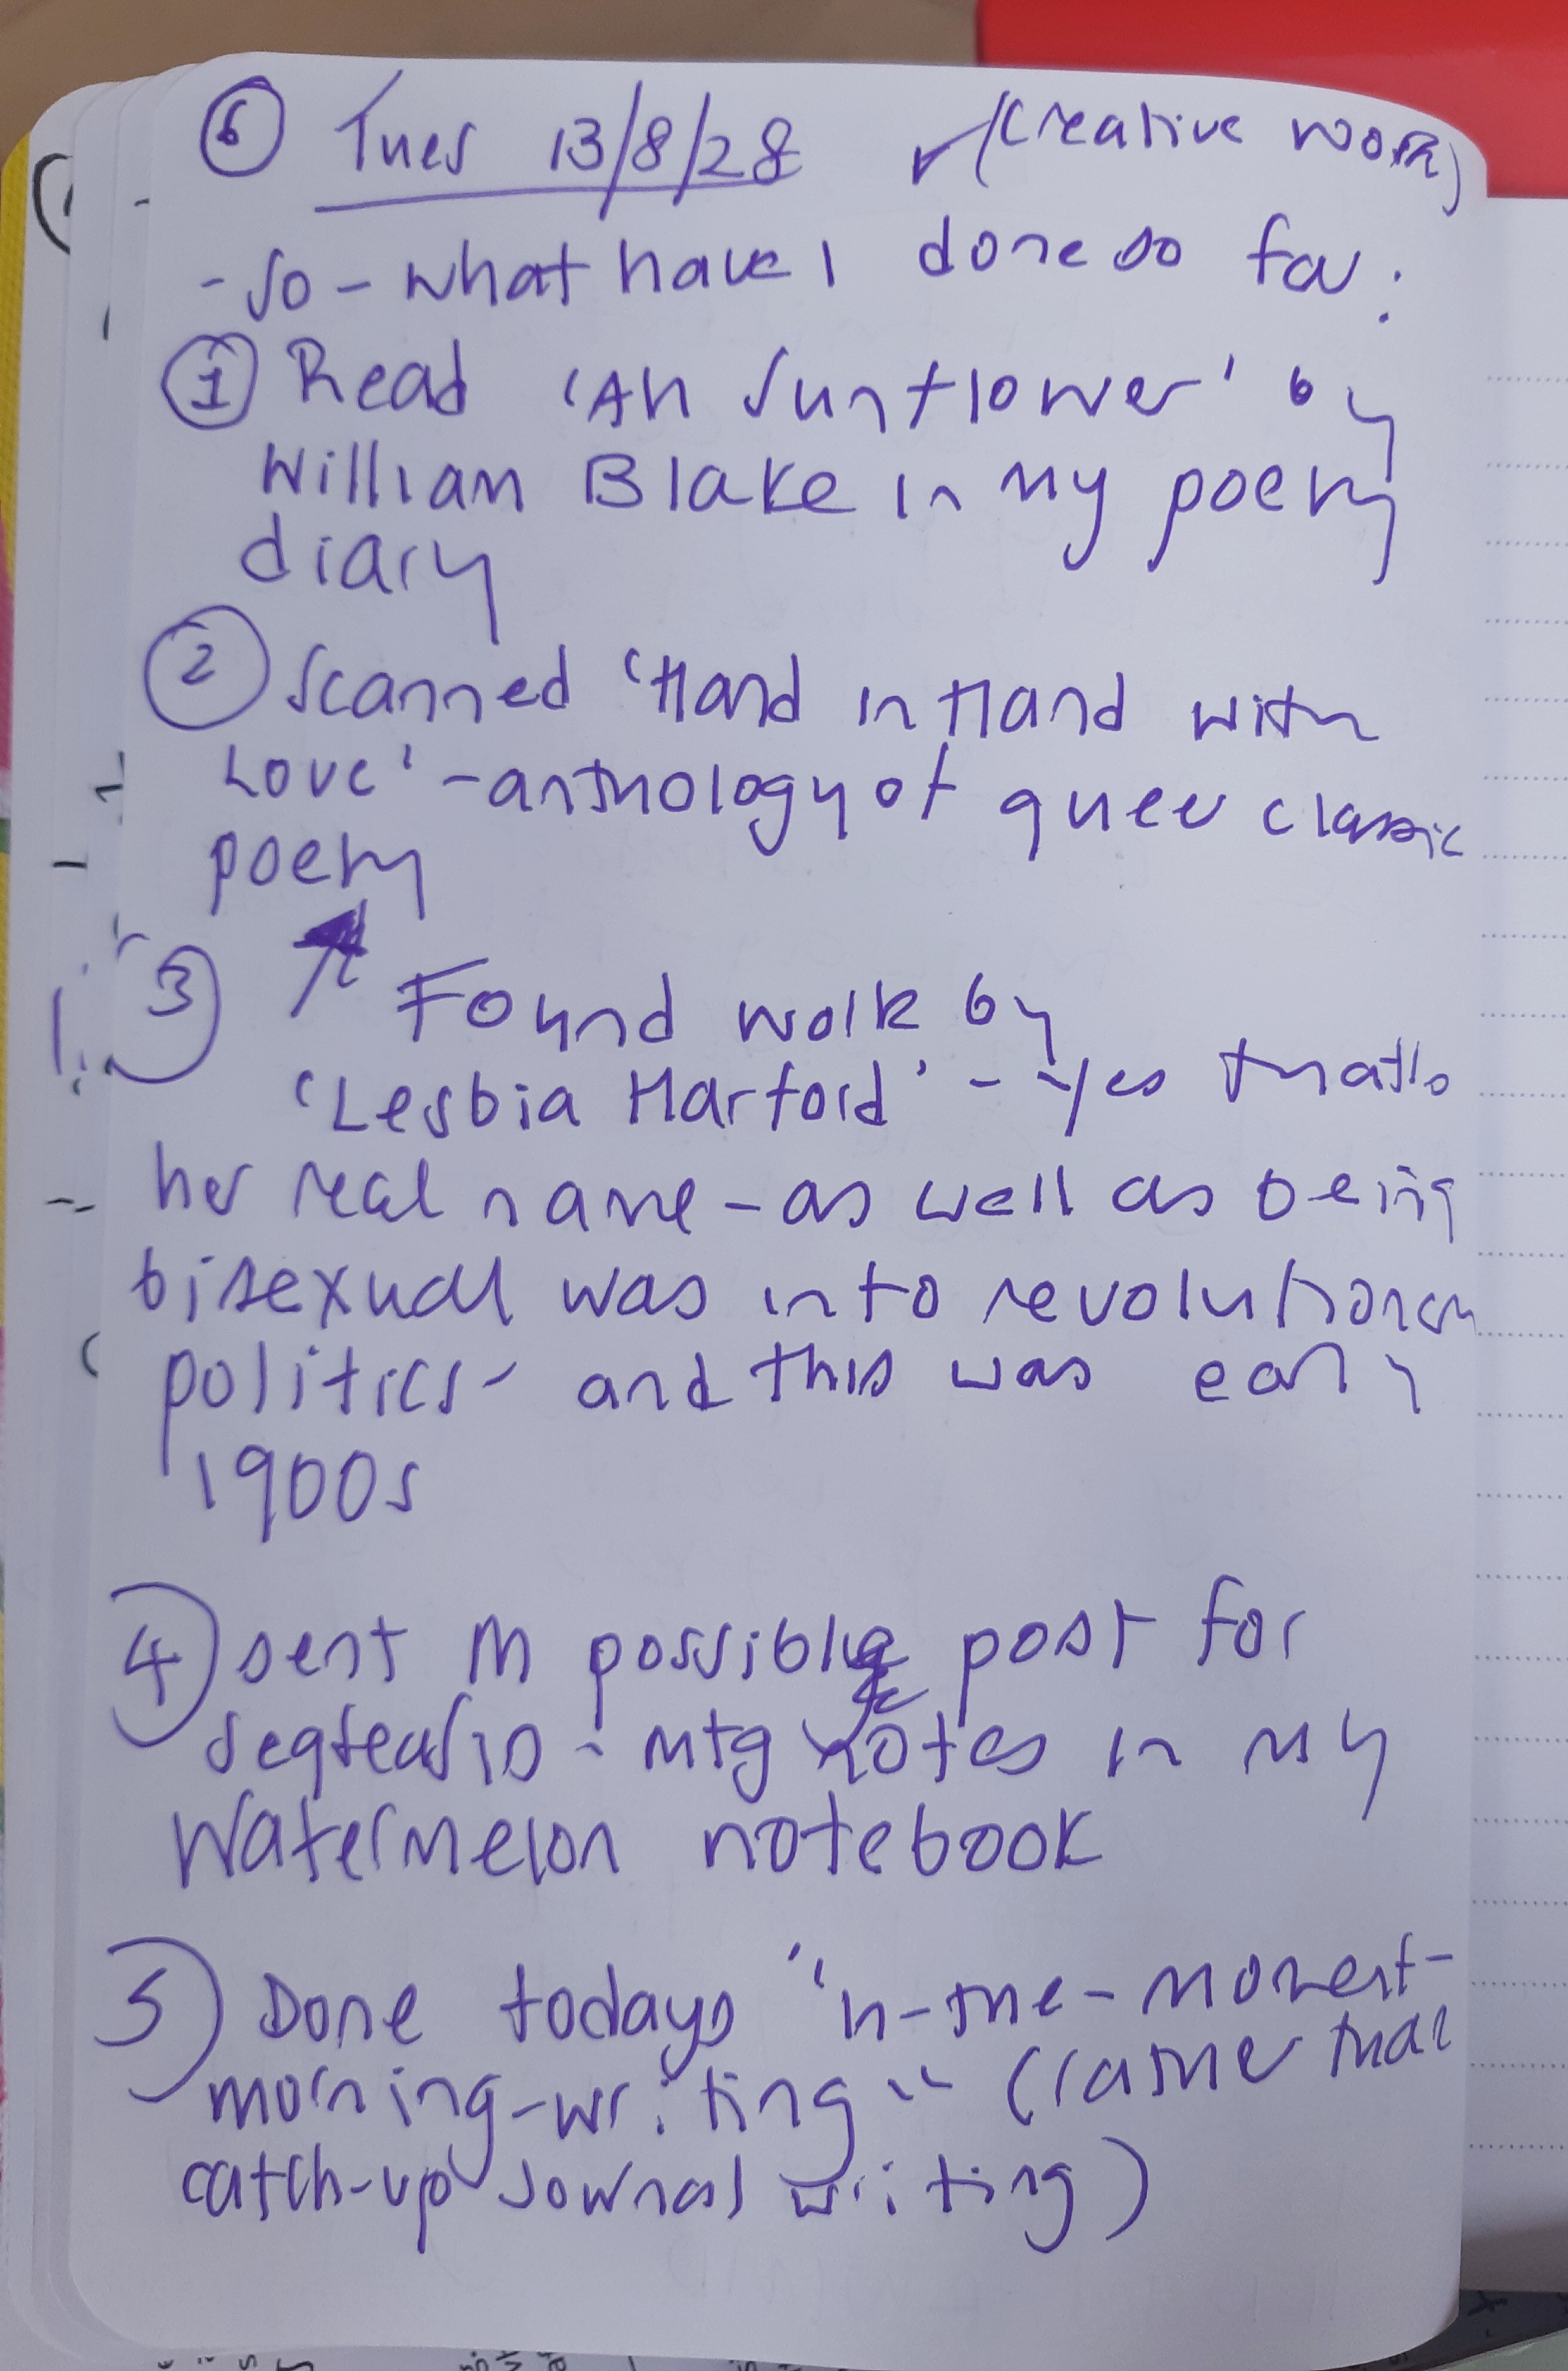 6 Tues 13/8/28 ✓ (creative work)
- so - what have I done so far:
1 Read 'Ah Sunflower' by
William Blake in my poetry
diary
2 Scanned 'Hand in Hand with
Love' - anthology of queer classic
poetry
3 Found work by
'Lesbia Harford' - yes that's
her real name - as well as being
bisexual was into revolutionary
politics - and this was early
1900s
4 sent M possible post for
- mtg notes in my
Watermelon notebook
5 Done todays "in-the-moment-
morning-writing" (rather than
catch-up journal writing)